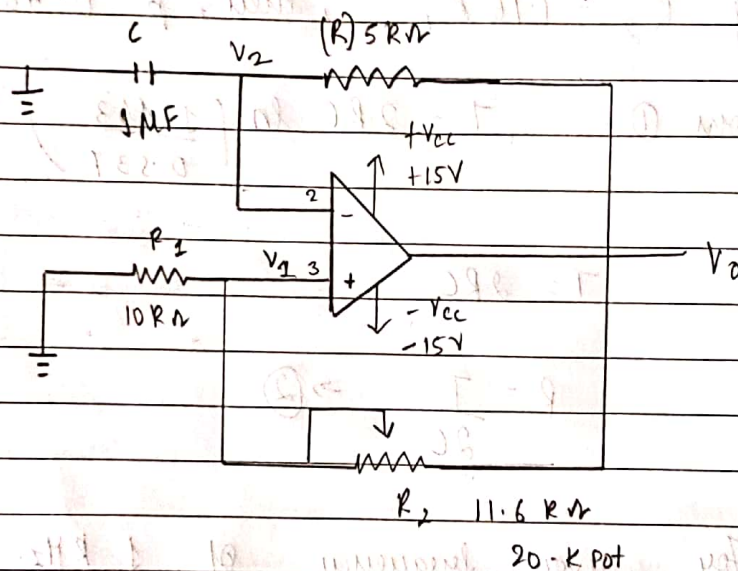 C
V2
(R) 5KΩ
1μF
+Vcc
+15V
2
-
R1
V1
3
+
Vo
10KΩ
-Vcc
-15V
R2 11.6 KΩ
20-K Pot